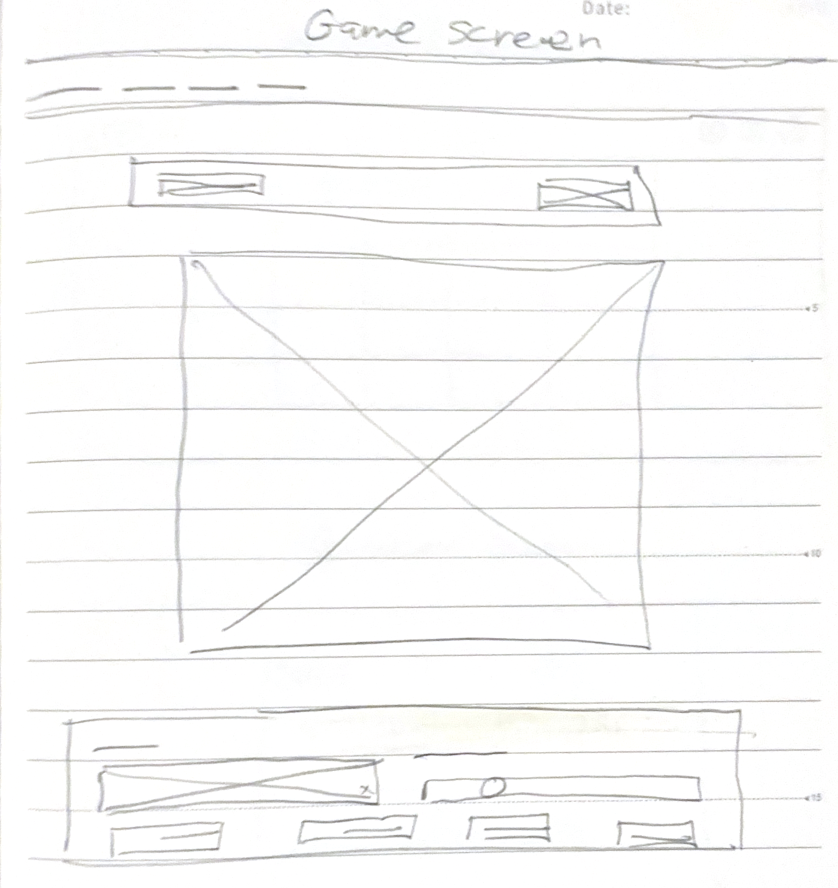 Date:
Game screen
5
10
x
15